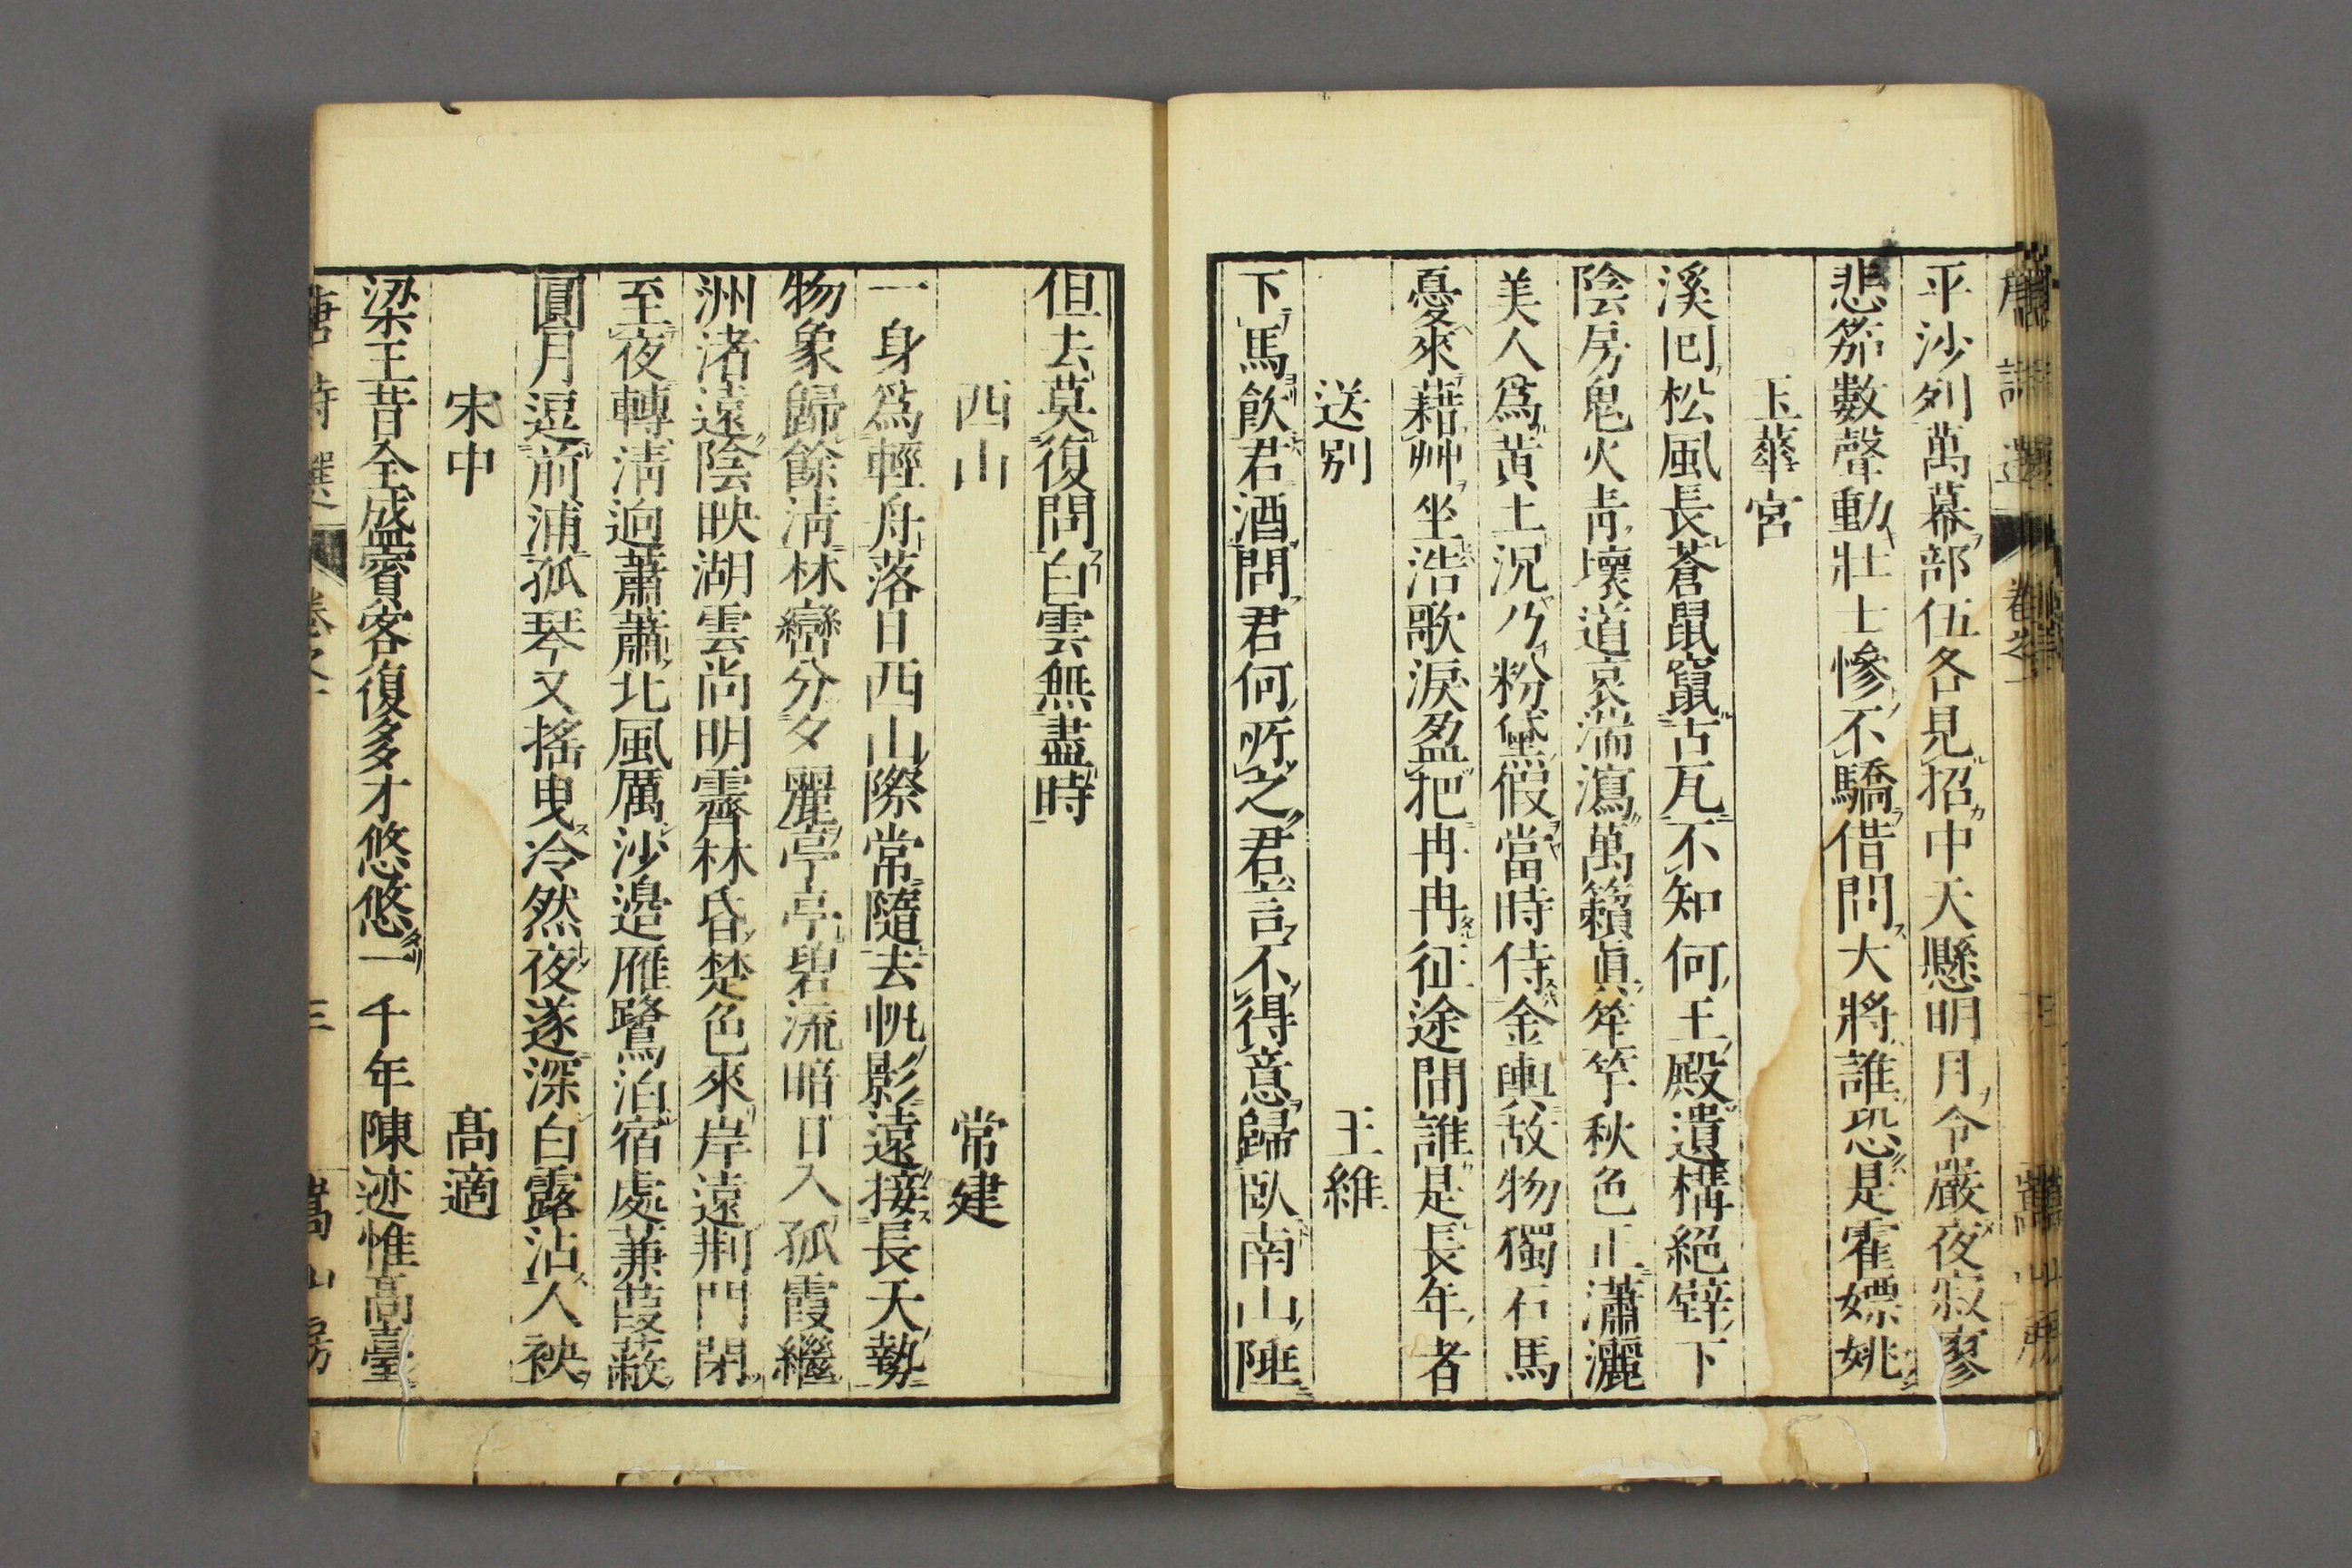 平沙列萬幕部伍各見招中天懸明月令嚴夜寂寥
悲笳數聲動壯士慘不驕借問大將誰恐是霍嫖姚
玉華宮
溪囘松風長蒼鼠竄古瓦不知何王殿遺構絕壁下
陰房鬼火靑壞道哀湍瀉萬籟眞笙竽秋色正瀟灑
美人爲黃土況乃粉黛假當時侍金輿故物獨石馬
憂來藉艸坐浩歌淚盈把冉冉征途間誰是長年者
送別 王維
下馬飮君酒問君何所之君言不得意歸臥南山陲
但去莫復問白雲無盡時
西山 常建
一身爲輕舟落日西山際常隨去帆影遠接長天勢
物象歸餘淸林巒分夕麗亭亭碧流暗日入孤霞繼
洲渚遠陰映湖雲尚明霽林昏楚色來岸遠荆門閉
至夜轉淸迥蕭蕭北風厲沙邉雁鷺泊宿處蒹葭蔽
圓月逗前浦孤琴又搖曳冷然夜遂深白露沾人袂
宋中 高適
梁王昔全盛賓客復多才悠悠一千年陳迹惟高臺
唐詩選 卷之一 三 嵩山房